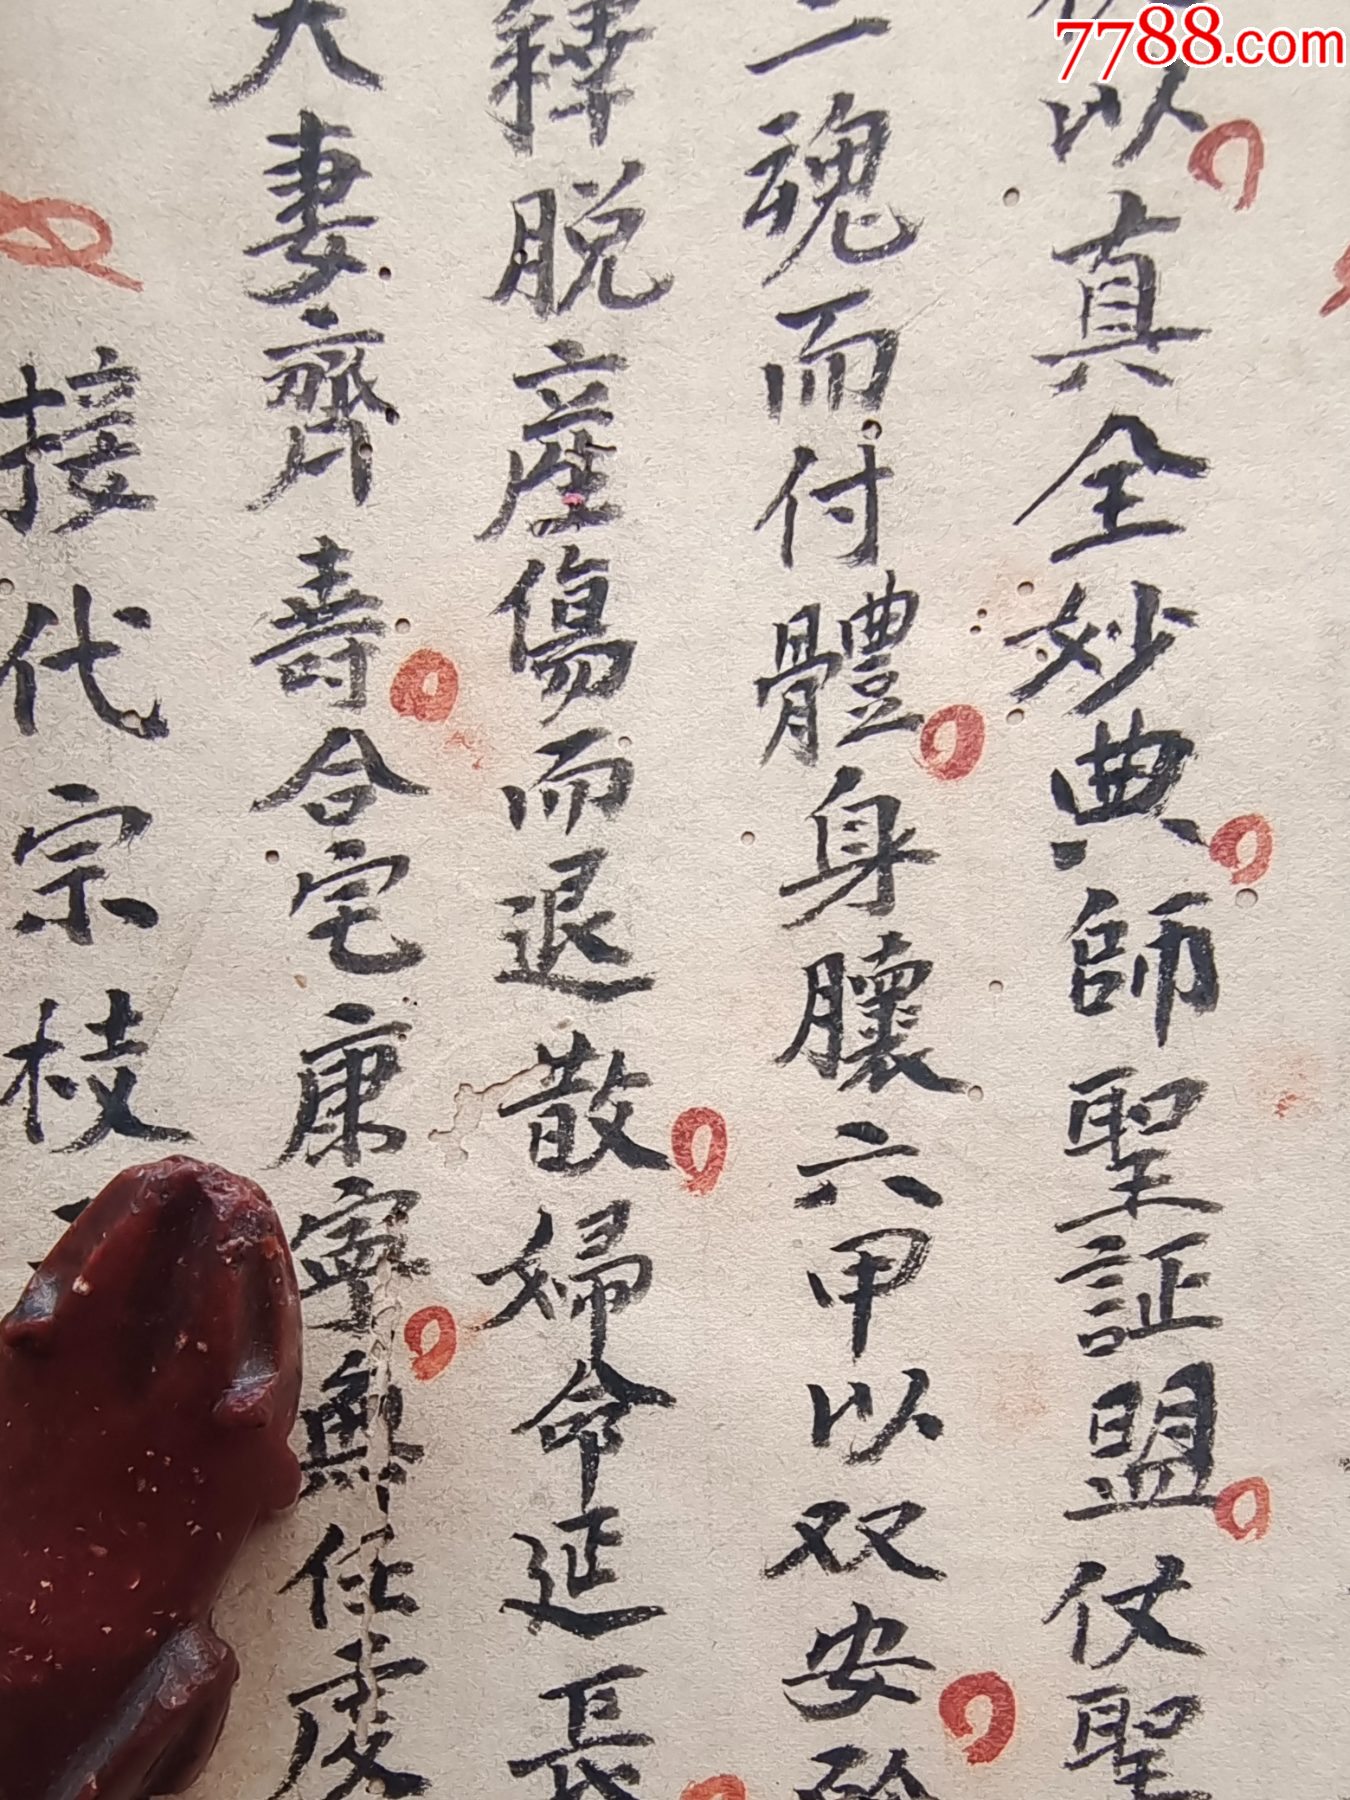 7788.com
以真全妙典師聖証盟仗聖
二魂而付體身膿六甲以双安
釋脱産傷而退散婦命延長
夫妻齊壽合宅康寧無任虔
接代宗枝